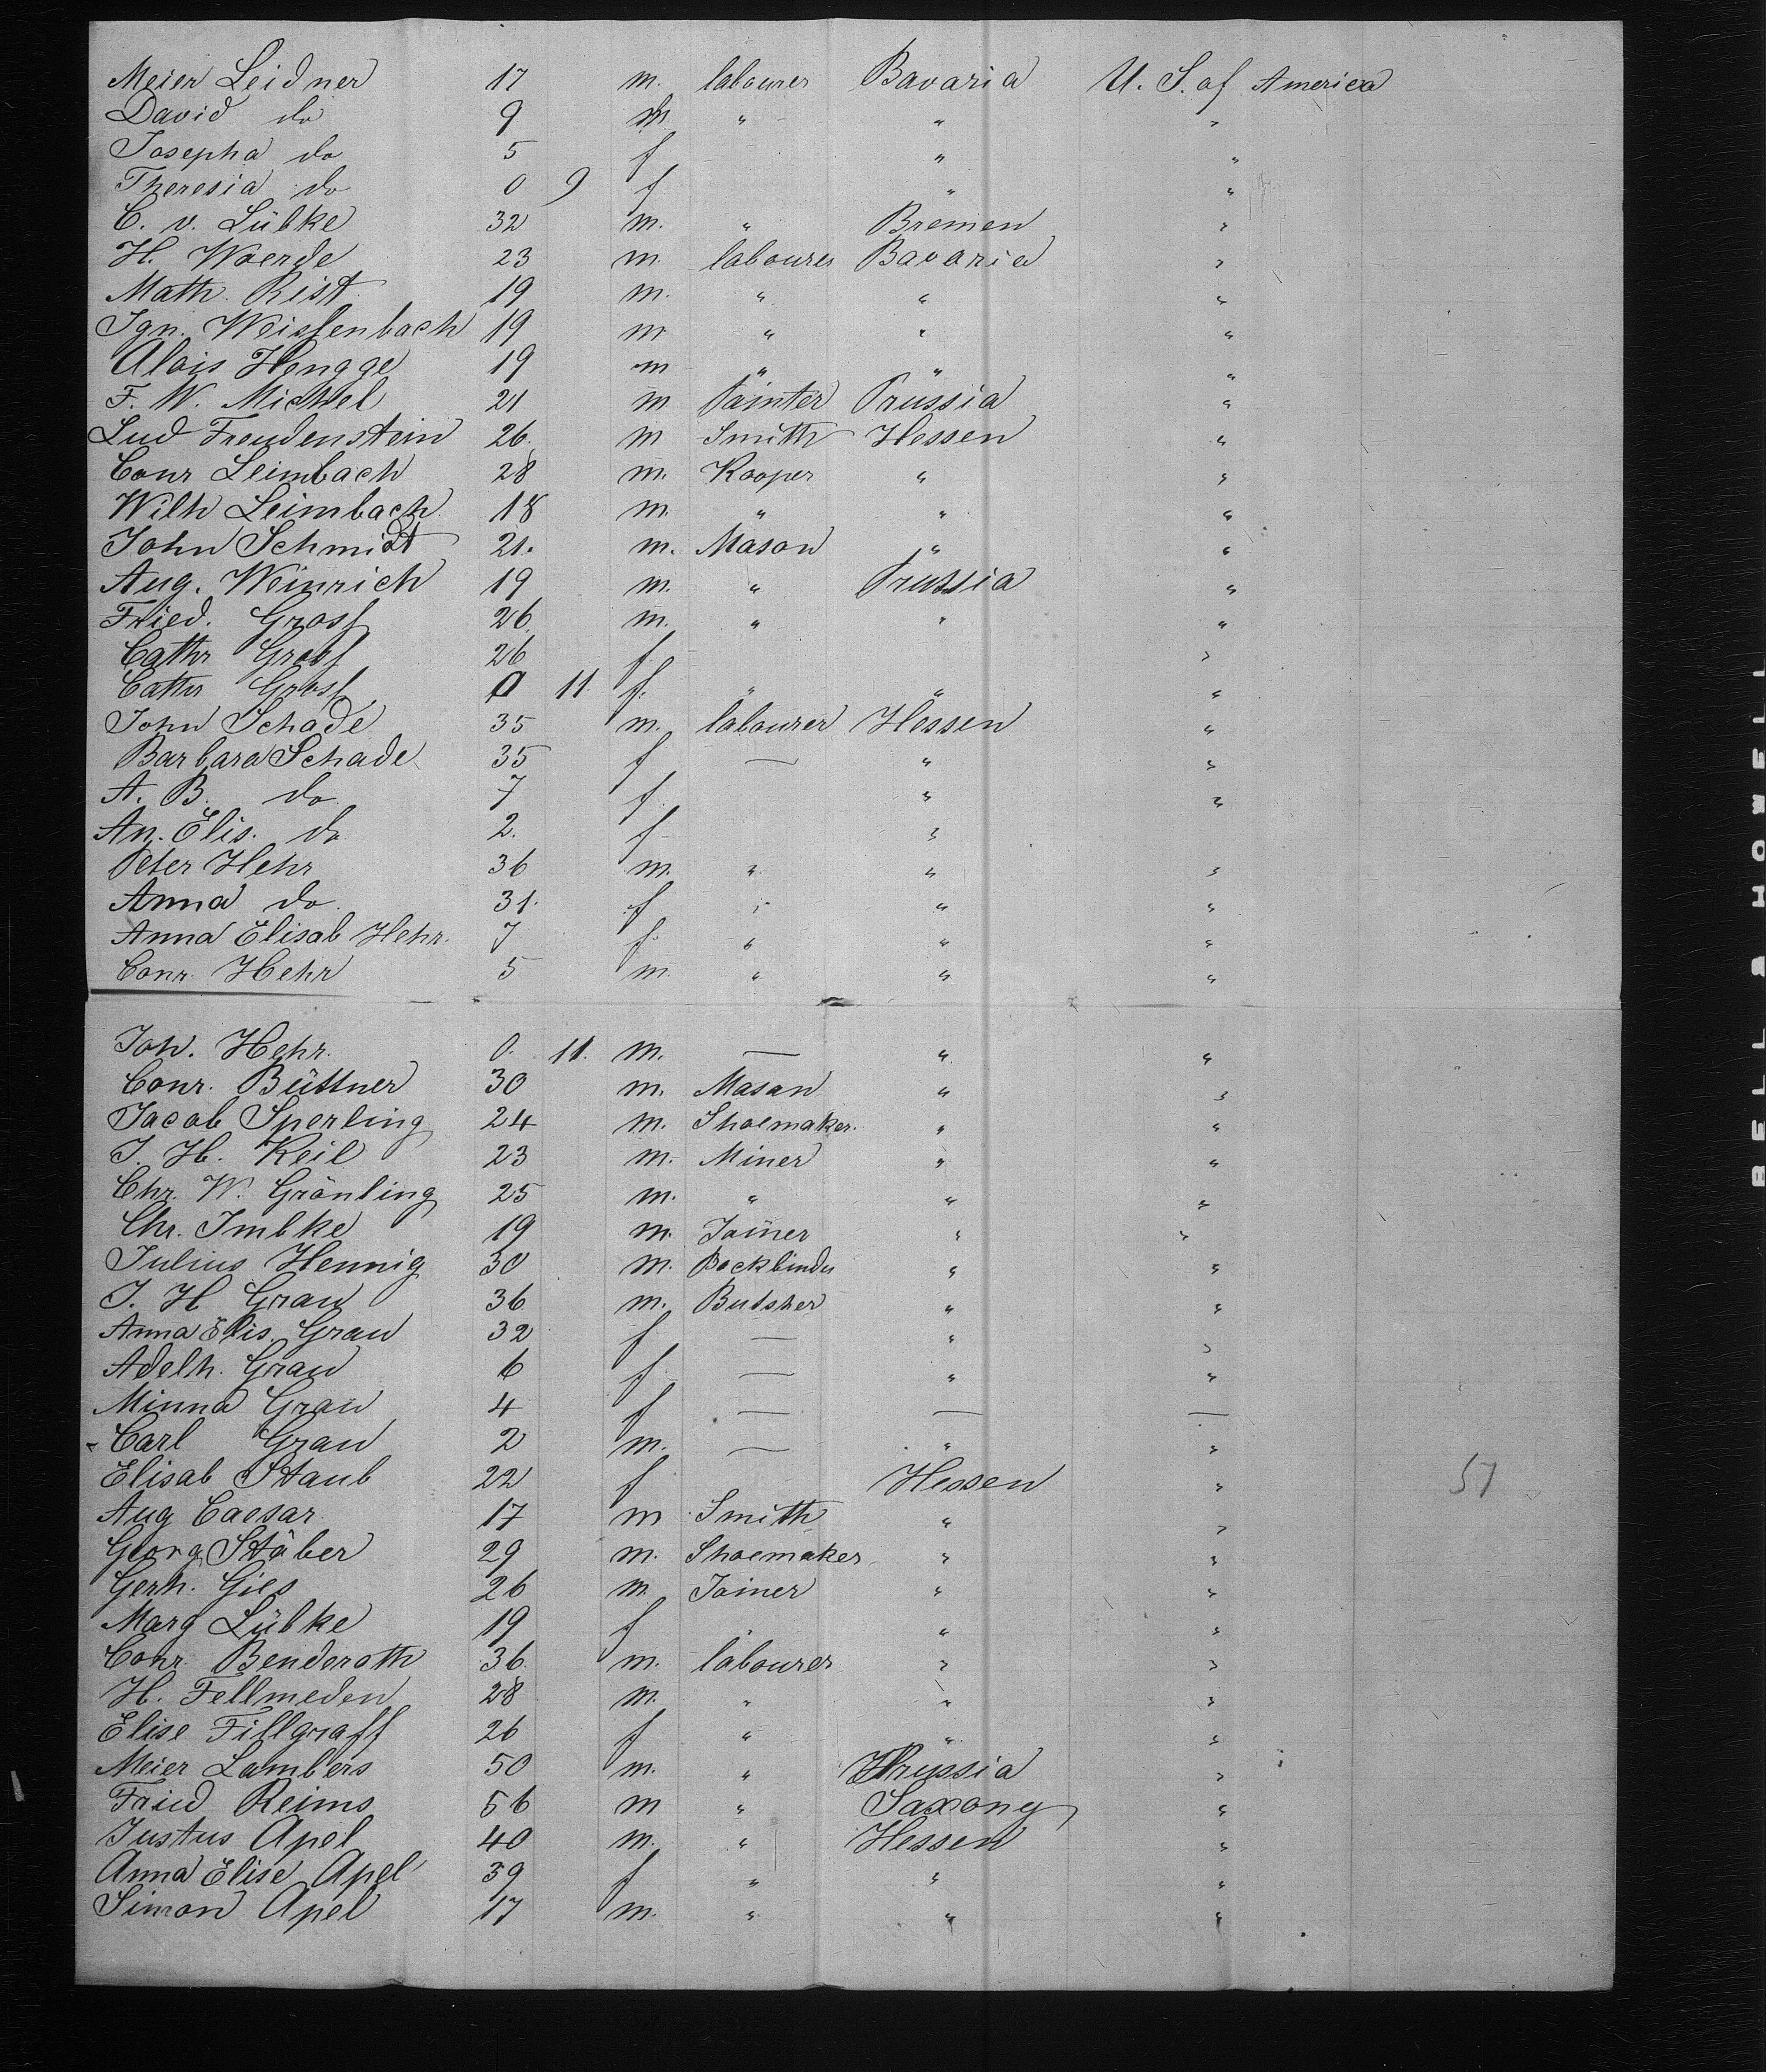 Meier Leidner 17 m. labourer Bavaria U. S. of America
David do 9 m " " "
Josepha do 5 f " "
Theresia do 0 9 f " "
C. v. Lübke 32 m. " Bremen "
H. Woerde 23 m. labourer Bavaria "
Math. Rist 19 m. " " "
Ign. Weissenbach 19 m " " "
Alois Hengge 19 m " " "
F. W. Michel 21 m Painter Prussia "
Lud Freudenstein 26. m Smith Hessen "
Conr Leimbach 28 m. Kooper " "
Wilh Leimbach 18 m. " " "
John Schmidt 21. m. Mason " "
Aug. Weinrich 19 m. " Prussia "
Fried. Gross 26. m. " " "
Cathr Gross 26 f. "
Cathr Gross 0 11. f. " " "
John Schade 35 m. labourer Hessen "
Barbara Schade 35 f — " "
A. B. do 7 f. " "
An. Elis. do 2. f " "
Peter Hehr 36 m. " " "
Anna do. 31. f " " "
Anna Elisab Hehr. 7 f. " " "
Conr. Hehr 5 m. " " "
Joh. Hehr. 0. 11. m. — " "
Conr. Büttner 30 m. Masan " "
Jacob Sperling 24 m. Shoemaker. " "
J. H. Keil 23 m. Miner " "
Chr. W. Gränling 25 m. " " "
Chr. Imbke 19 m. Joiner " "
Julius Hennig 30 m. Bockbinder " "
J. H Grau 36 m. Butsher " "
Anna Elis. Grau 32 f — " "
Adelh. Grau 6 f — " "
Minna Grau 4 f — — —
Carl Grau 2 m. — " "
Elisab Staub 22 f Hessen " 57
Aug Caesar. 17 m Smith " "
Georg Stäber 29 m. Shoemaker " "
Gerh. Gies 26 m. Joiner " "
Marg Lübke 19 f " "
Conr. Benderoth 36. m. labourer " "
H. Fellmeden 28 m. " " "
Elise Fillgraff 26 f " " "
Meier Lambers 50 m. " Prussia "
Fried Reims 56 m " Saxony "
Justus Apel 40 m. " Hessen "
Anna Elise Apel 39 f " " "
Simon Apel 17 m. " " "
BELL & HOWELL